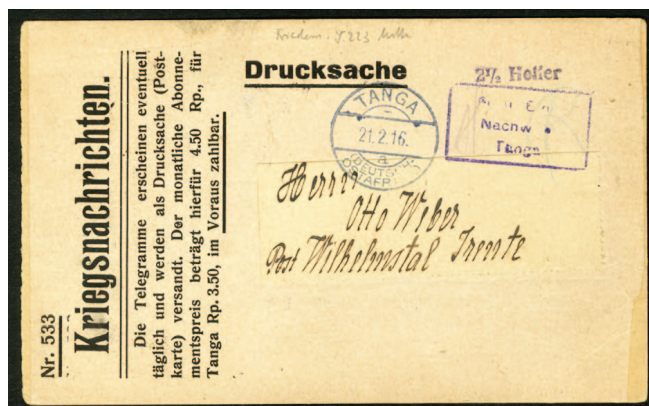 Nr. 533
Kriegsnachrichten.
Die Telegramme erscheinen eventuell
täglich und werden als Drucksache (Post-
karte) versandt. Der monatliche Abonne-
mentspreis beträgt hierfür 4.50 Rp., für
Tanga Rp. 3.50, im Voraus zahlbar.
Drucksache
2½ Heller
Nachw
Tanga
TANGA
21.2.16.
a
Herrn
Otto Weber
Post Wilhelmstal